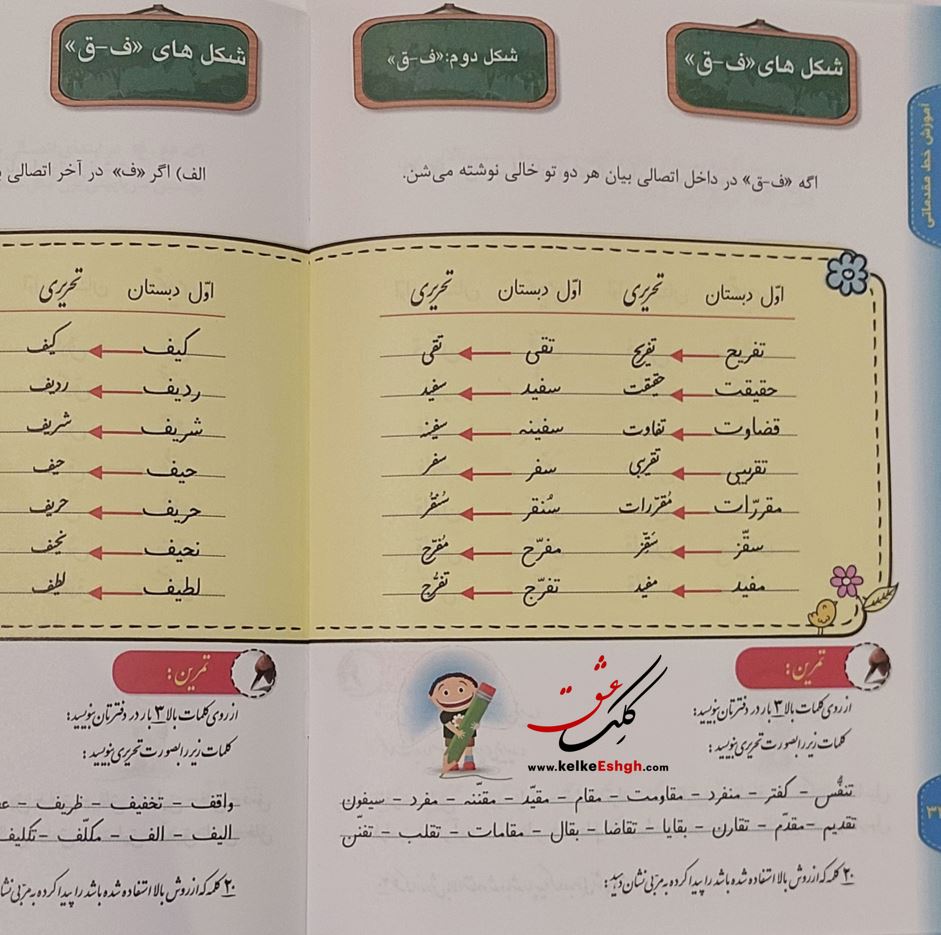 شکل های «ف-ق»
شکل دوم: «ف-ق»
آموزش خط مقدماتی
اگه «ف-ق» در داخل اتصالی بیان هر دو تو خالی نوشته می‌شن.
اوّل دبستان تحریری اوّل دبستان تحریری
تفریح تفریح تقی تقی
حقیقت حقیقت سفید سفید
قضاوت تفاوت سفینه سفینه
تقریبی تقریبی سفر سفر
مقررّات مُقرّرات سُنقر سُنقُر
سقّز سَقّز مفرّح مُفرّح
مفید مفید تفرّج تفرُّج
تمرین:
از روی کلمات بالا ۳ بار در دفترتان بنویسید:
کلمات زیر را بصورت تحریری بنویسید:
کلک عشق
www.kelkeEshgh.com
تنفُّس - کفتر - منفرد - مقاومت - مقام - مقیّد - مقنّنه - مفرد - سیفون
تقدیم - مقدّم - تقارن - بقایا - تقاضا - بقال - مقامات - تقلب - تفنّن
۲۰ کلمه که از روش بالا استفاده شده باشد را پیدا کرده به مربّی نشان دهید:
شکل های «ف-ق»
الف) اگر «ف» در آخر اتصالی
اوّل دبستان تحریری
کیف کیف
ردیف ردیف
شریف شریف
حیف حیف
حریف حریف
نحیف نحیف
لطیف لطیف
تمرین:
از روی کلمات بالا ۳ بار در دفترتان بنویسید:
کلمات زیر را بصورت تحریری بنویسید:
واقف - تخفیف - ظریف -
الیف - الف - مکلّف - تکلیف
۲۰ کلمه که از روش بالا استفاده شده باشد را پیدا کرده به مربّی